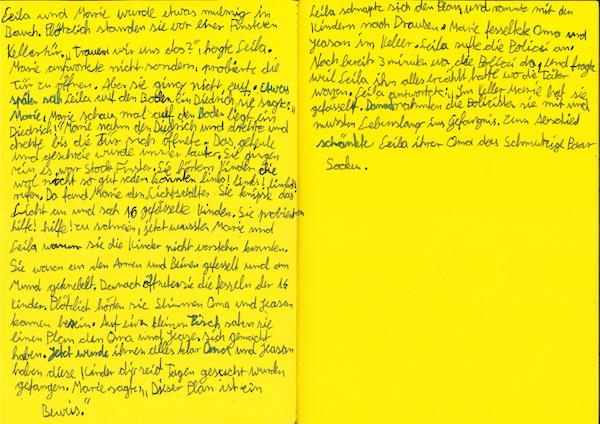 Leila und Marie wurde etwas mulmig in
Bauch. Plötzlich standen sie vor einer Finsteren
Kellertür. „Trauen wir uns das?", fragte Leila.
Marie antwortete nicht sondern, probierte die
Tür zu öffnen. Aber sie ging nicht auf. Etwas
später sah Leila auf den Boden ein Diedrich, sie sagte:"
Marie, Marie schau mal auf den Boden liegt ein
Diedrich!" Marie nahm den Diedrich und drehte und
drehte bis die Tür sich öffnete. Das geheule
und geschreie wurde immer lauter. Sie gingen
rein es war Stock Finster. Sie hörten Kinder die
wol nicht so gut reden konnten
rufen. Da fand Marie den Lichtschalter. Sie knipste das
Licht an und sah 16 gefesselte Kinder. Sie probierten
hilfe! hilfe! zu schreien, jetzt wussten Marie und
Leila warum sie die Kinder nicht verstehen konnten.
Sie waren an den Armen und Beinen gefesselt und am
Mund geknebelt. Danach öffneten sie die fesseln der 16
Kinder. Plötzlich hörten sie Stimmen Oma und
kamen herein. Auf einen kleinen Tisch sahen sie
einen Plan den Oma und sich gemacht
haben. Jetzt wurde ihnen alles klar Oma und
haben diese Kinder die seid Tagen gesucht wurden
gefangen. Marie sagte: „Dieser Plan ist ein
Beweis."
Leila schnapte sich den Plan und rannte mit den
Kindern nach Drausen. Marie fesselte Oma und
im Keller. Leila rufte die Polizei an.
Nach bereits 3 minuten war die Polizei da, und fragte
weil Leila ihn alles erzählt hatte wo die Täter
waren. Leila antwortete: „Im Keller Marie hat sie
gefesselt. Danach nahmen die Polizisten sie mit und
mussten Lebenslang ins Gefängnis. Zum Abschied
schänkte Leila ihrer Oma das Schmutzige Paar
Socken.